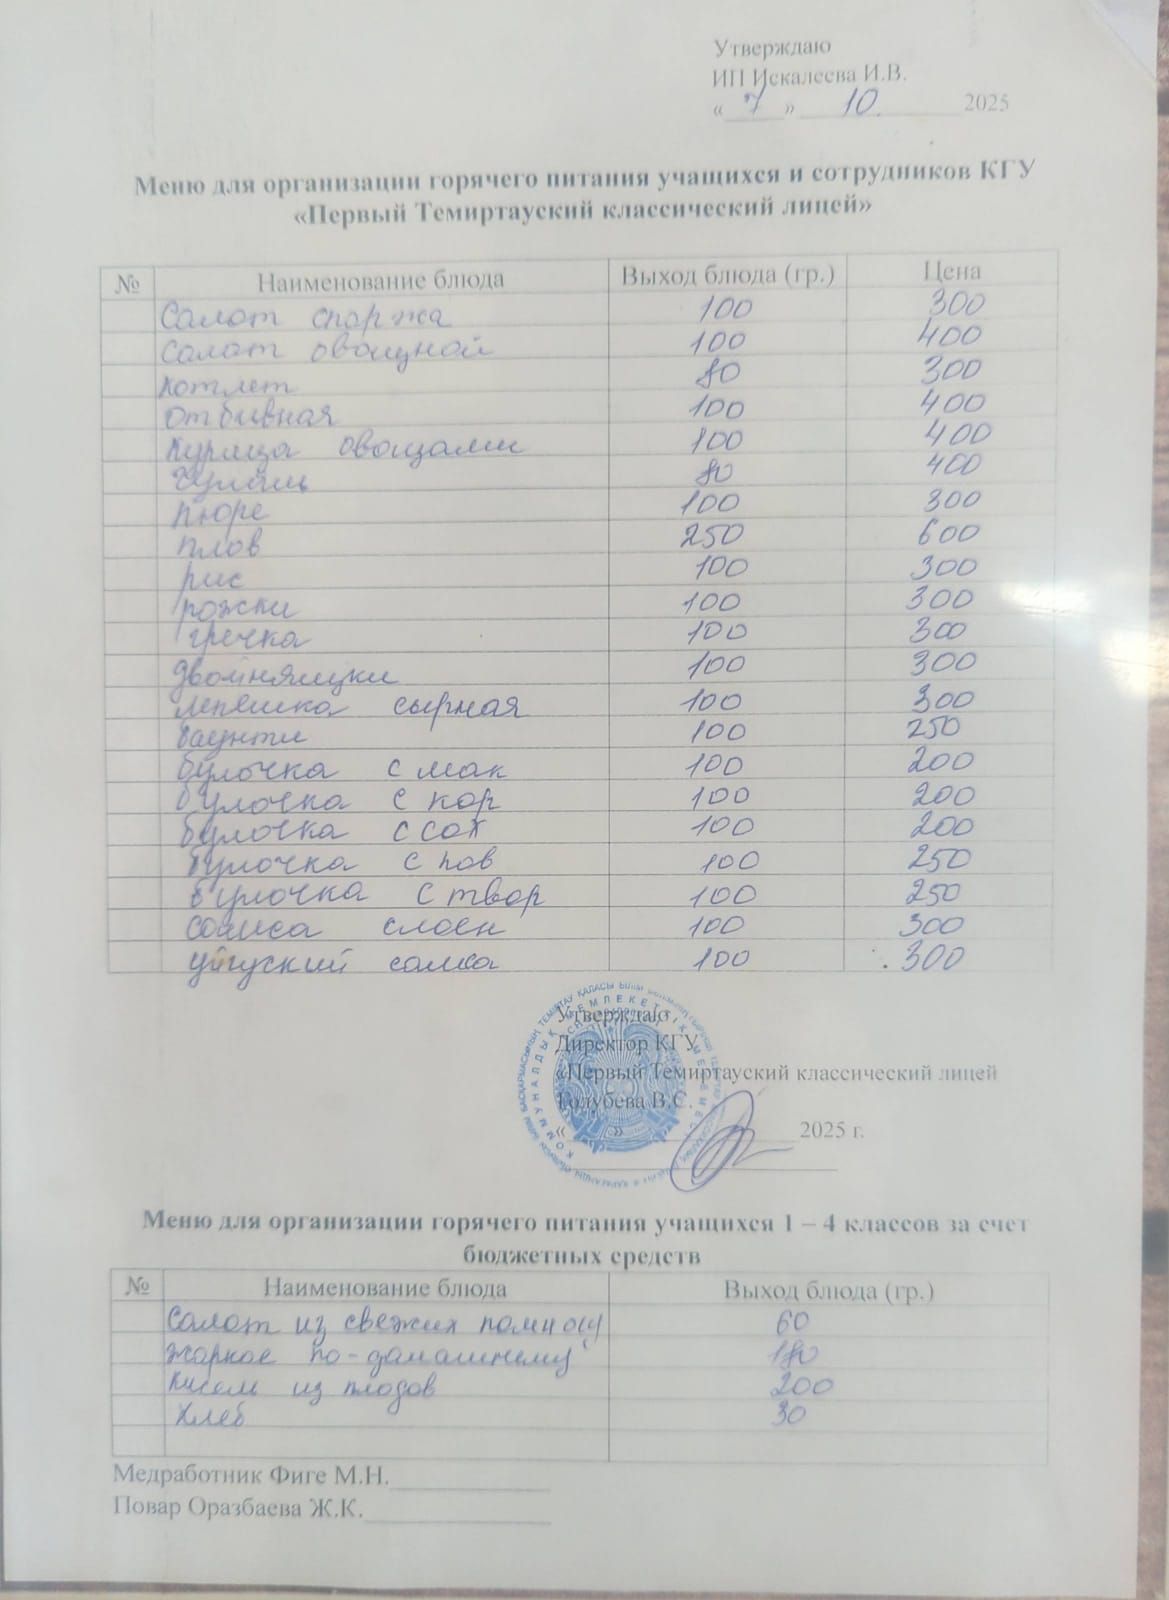 Утверждаю
ИП Искалеева И.В.
« 7 » 10. 2025
Меню для организации горячего питания учащихся и сотрудников КГУ
«Первый Темиртауский классический лицей»
№ Наименование блюда Выход блюда (гр.) Цена
Салат спаржа 100 300
Салат овощной 100 400
Котлет 80 300
Отбивная 100 400
Курица овощами 100 400
Гуляш 80 400
Пюре 100 300
Плов 250 600
рис 100 300
рожки 100 300
гречка 100 300
двойняшки 100 300
лепешка сырная 100 300
баунти 100 250
булочка с мак 100 200
булочка с кор 100 200
булочка с сах 100 200
булочка с пов 100 250
булочка с твор 100 250
Самса слоен 100 300
уйгуский самса 100 300
Утверждаю
Директор КГУ
«Первый Темиртауский классический лицей
Голубева В.С.
« » 2025 г.
Меню для организации горячего питания учащихся 1 – 4 классов за счет
бюджетных средств
№ Наименование блюда Выход блюда (гр.)
Салат из свежих 60
Жаркое по-домашнему 180
Кисель из плодов 200
Хлеб 30
Медработник Фиге М.Н.
Повар Оразбаева Ж.К.